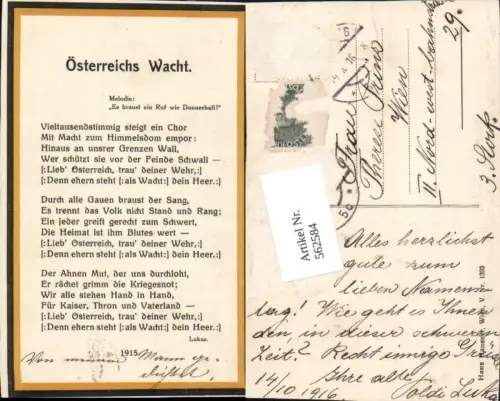 Österreichs Wacht.
Melodie:
„Es braust ein Ruf wie Donnerhall!"
Vieltausendstimmig steigt ein Chor
Mit Macht zum Himmelsdom empor:
Hinaus an unsrer Grenzen Wall,
Wer schützt sie vor der Feinde Schwall —
[:Lieb' Österreich, trau' deiner Wehr,:]
[:Denn ehern steht [:als Wacht:] dein Heer.:]
Durch alle Gauen braust der Sang,
Es trennt das Volk nicht Stand und Rang;
Ein jeder greift gerecht zum Schwert,
Die Heimat ist ihm Blutes wert —
[:Lieb' Österreich, trau' deiner Wehr,:]
[:Denn ehern steht [:als Wacht:] dein Heer.:]
Der Ahnen Mut, der uns durchloht,
Er rächt grimm die Kriegesnot;
Wir alle stehen Hand in Hand,
Für Kaiser, Thron und Vaterland —
[:Lieb' Österreich, trau' deiner Wehr,:]
[:Denn ehern steht [:als Wacht:] dein Heer.:]
Lukas.
1915.
Von meinem Mann ge-
dichtet
Frau
Wien
II. Nord-west-bahnstr
29.
3. Stock.
Artikel Nr.
562584
Alles herzlichst
gute zum
lieben Namens-
tag! Wie geht es Ihnen
den in dieser schweren
Zeit? Recht innige Grüße
Ihre alle
14/10 1916. Poldi Lukas